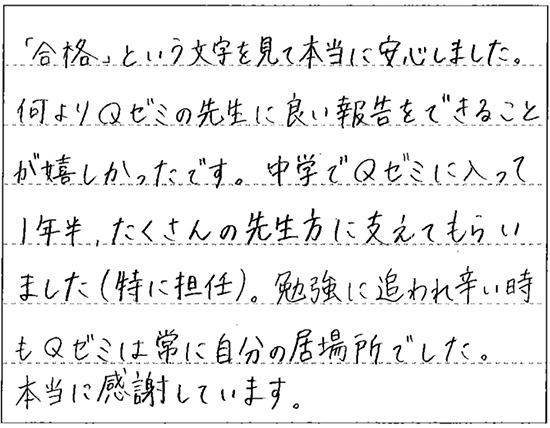 「合格」という文字を見て本当に安心しました。
何よりQゼミの先生に良い報告をできること
が嬉しかったです。中学でQゼミに入って
1年半、たくさんの先生方に支えてもらい
ました(特に担任)。勉強に追われ辛い時
もQゼミは常に自分の居場所でした。
本当に感謝しています。